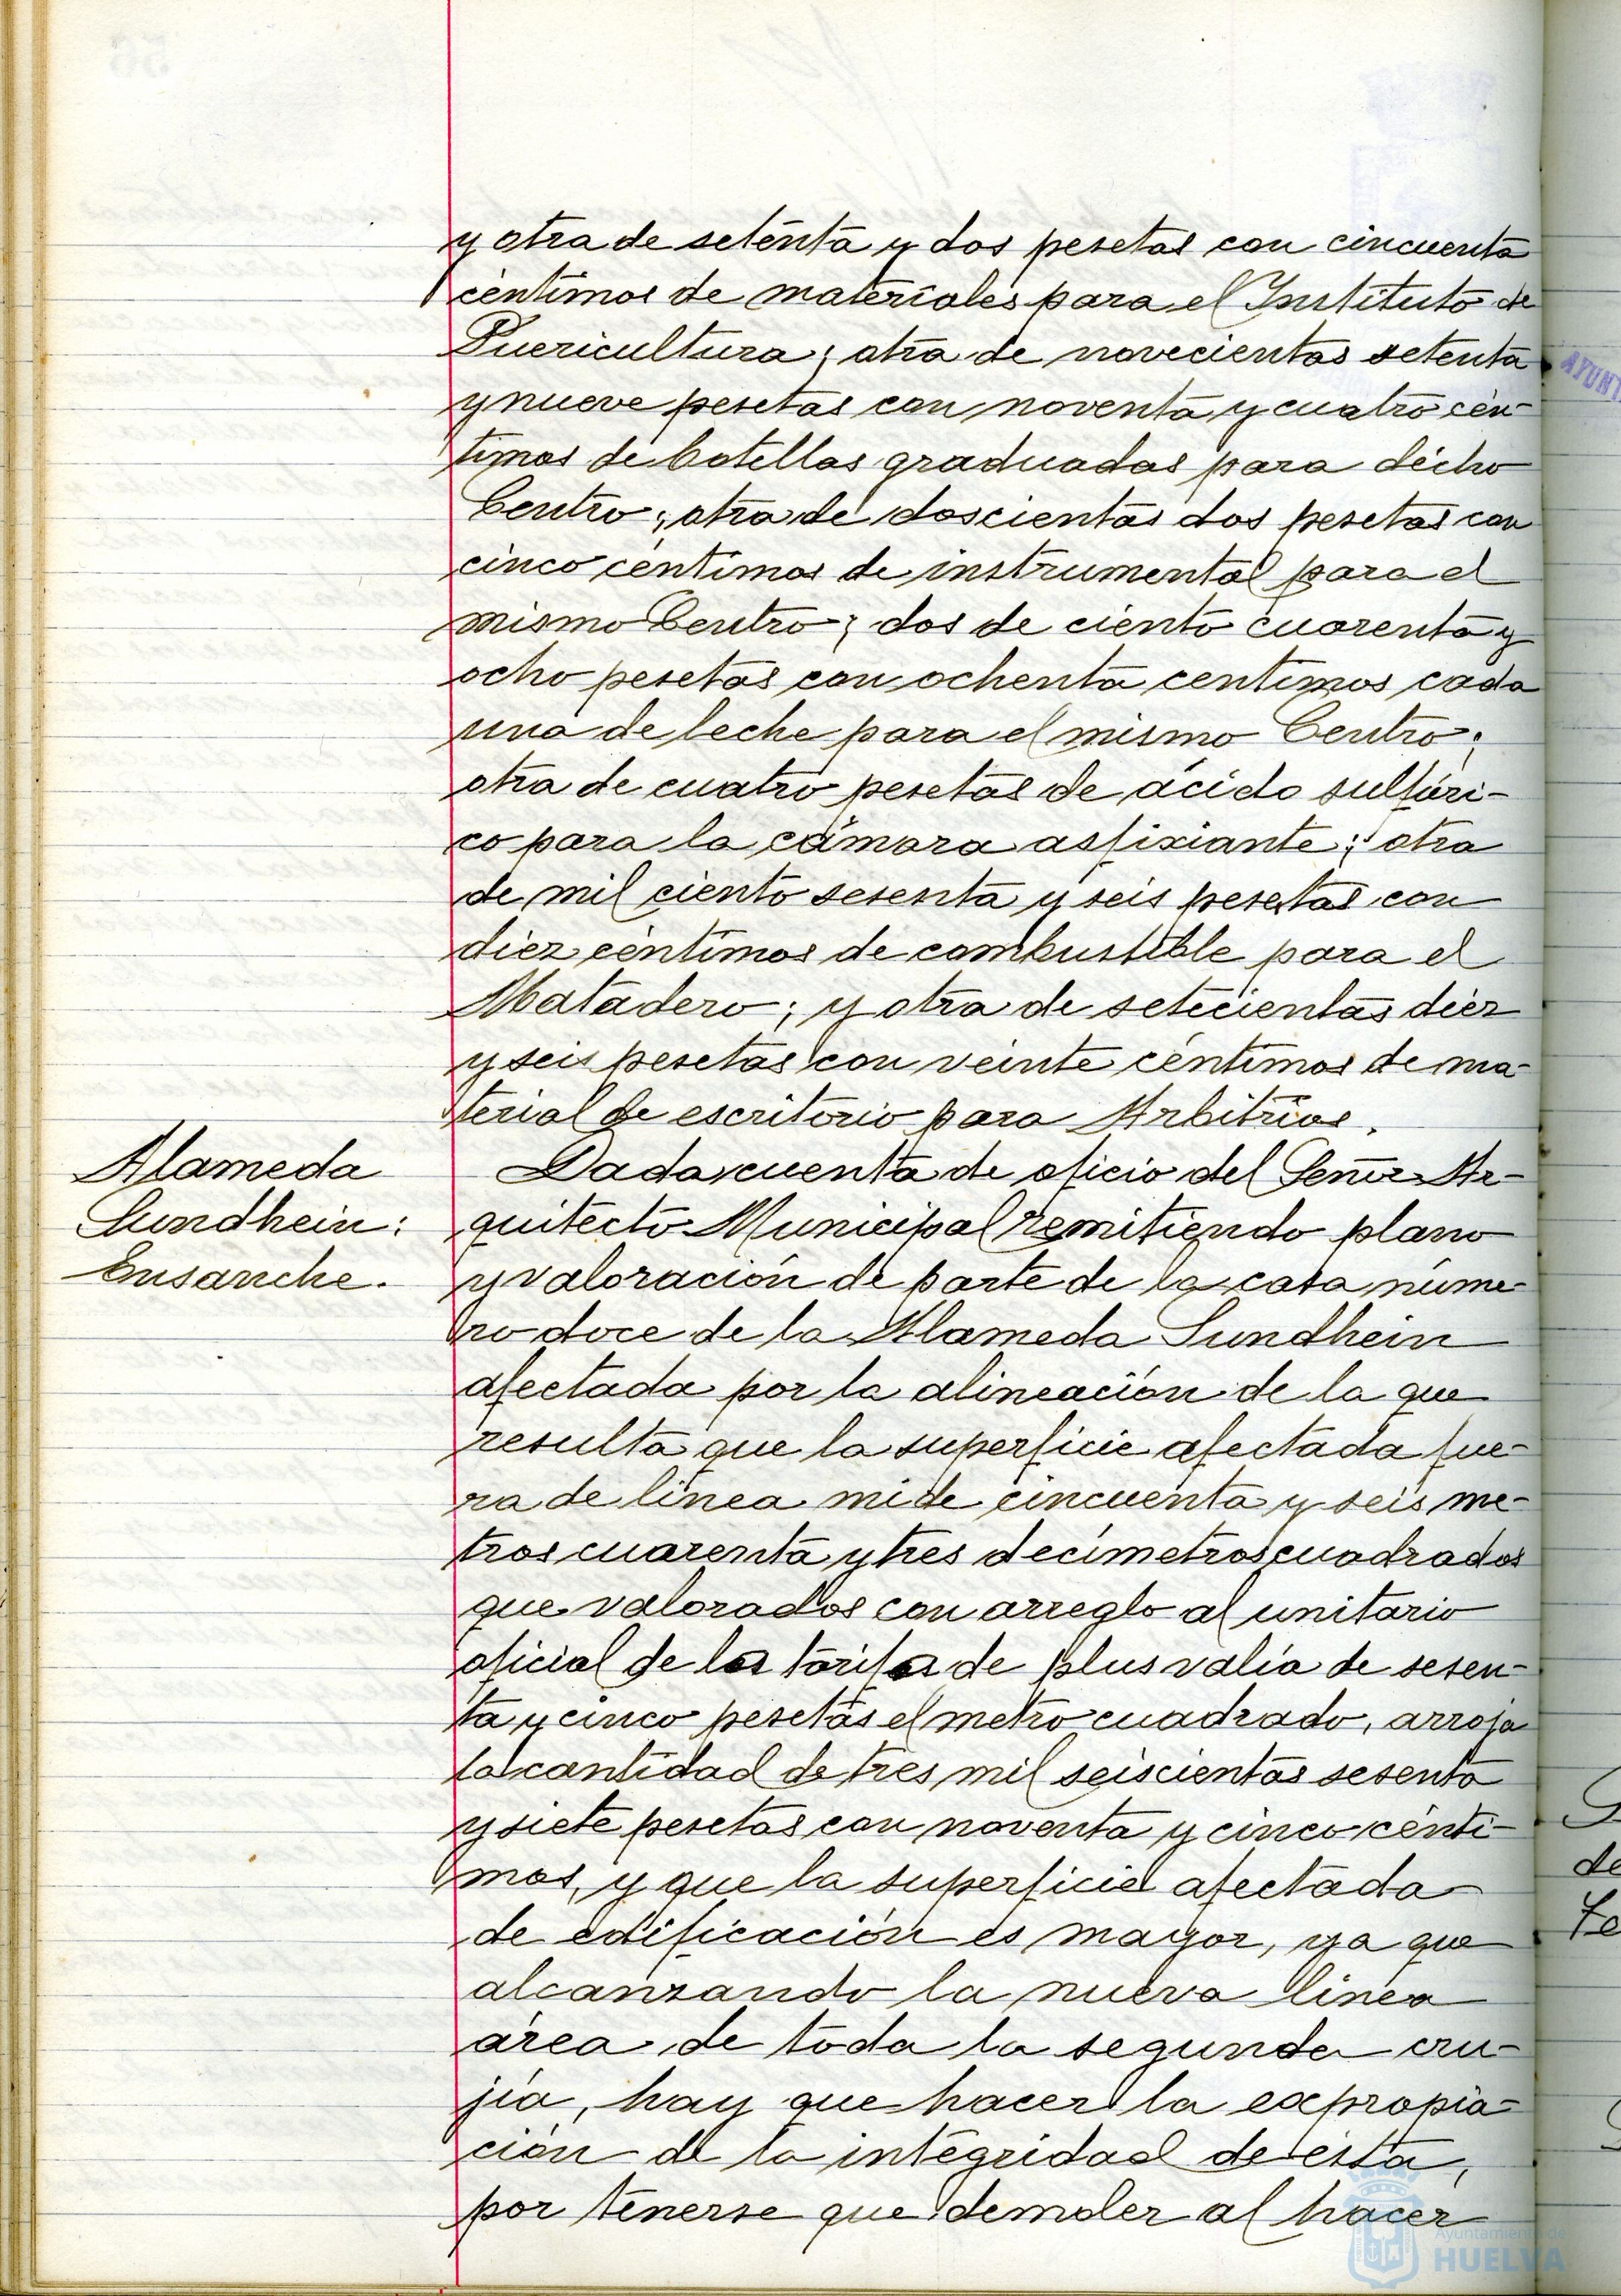 y otra de setenta y dos pesetas con cincuenta
céntimos de materiales para el Instituto de
Puericultura; otra de novecientas setenta
y nueve pesetas con noventa y cuatro cén-
timos de botellas graduadas para dicho
Centro; otra de doscientas dos pesetas con
cinco céntimos de instrumental para el
mismo Centro; dos de ciento cuarenta y
ocho pesetas con ochenta centimos cada
una de leche para el mismo Centro;
otra de cuatro pesetas de ácido sulfúri-
co para la cámara asfixiante; otra
de mil ciento sesenta y seis pesetas con
diez céntimos de combustible para el
Matadero; y otra de setecientas diez
y seis pesetas con veinte céntimos de ma-
terial de escritorio para Arbitrios.
Alameda
Sundhein:
Ensanche.
Dada cuenta de oficio del Señor Ar-
quitecto Municipal remitiendo plano
y valoración de parte de la casa núme-
ro doce de la Alameda Sundhein
afectada por la alineación de la que
resulta que la superficie afectada fue-
ra de línea mide cincuenta y seis me-
tros cuarenta y tres decímetros cuadrados
que valorados con arreglo al unitario
oficial de las tarifas de plus valía de sesen-
ta y cinco pesetas el metro cuadrado, arroja
la cantidad de tres mil seiscientas sesenta
y siete pesetas con noventa y cinco cénti-
mos, y que la superficie afectada
de edificación es mayor, ya que
alcanzando la nueva línea
área de toda la segunda cru-
jía, hay que hacer la expropia-
ción de la integridad de ésta,
por tenerse que demoler al hacer
AYUNT
de
Ayuntamiento de
HUELVA